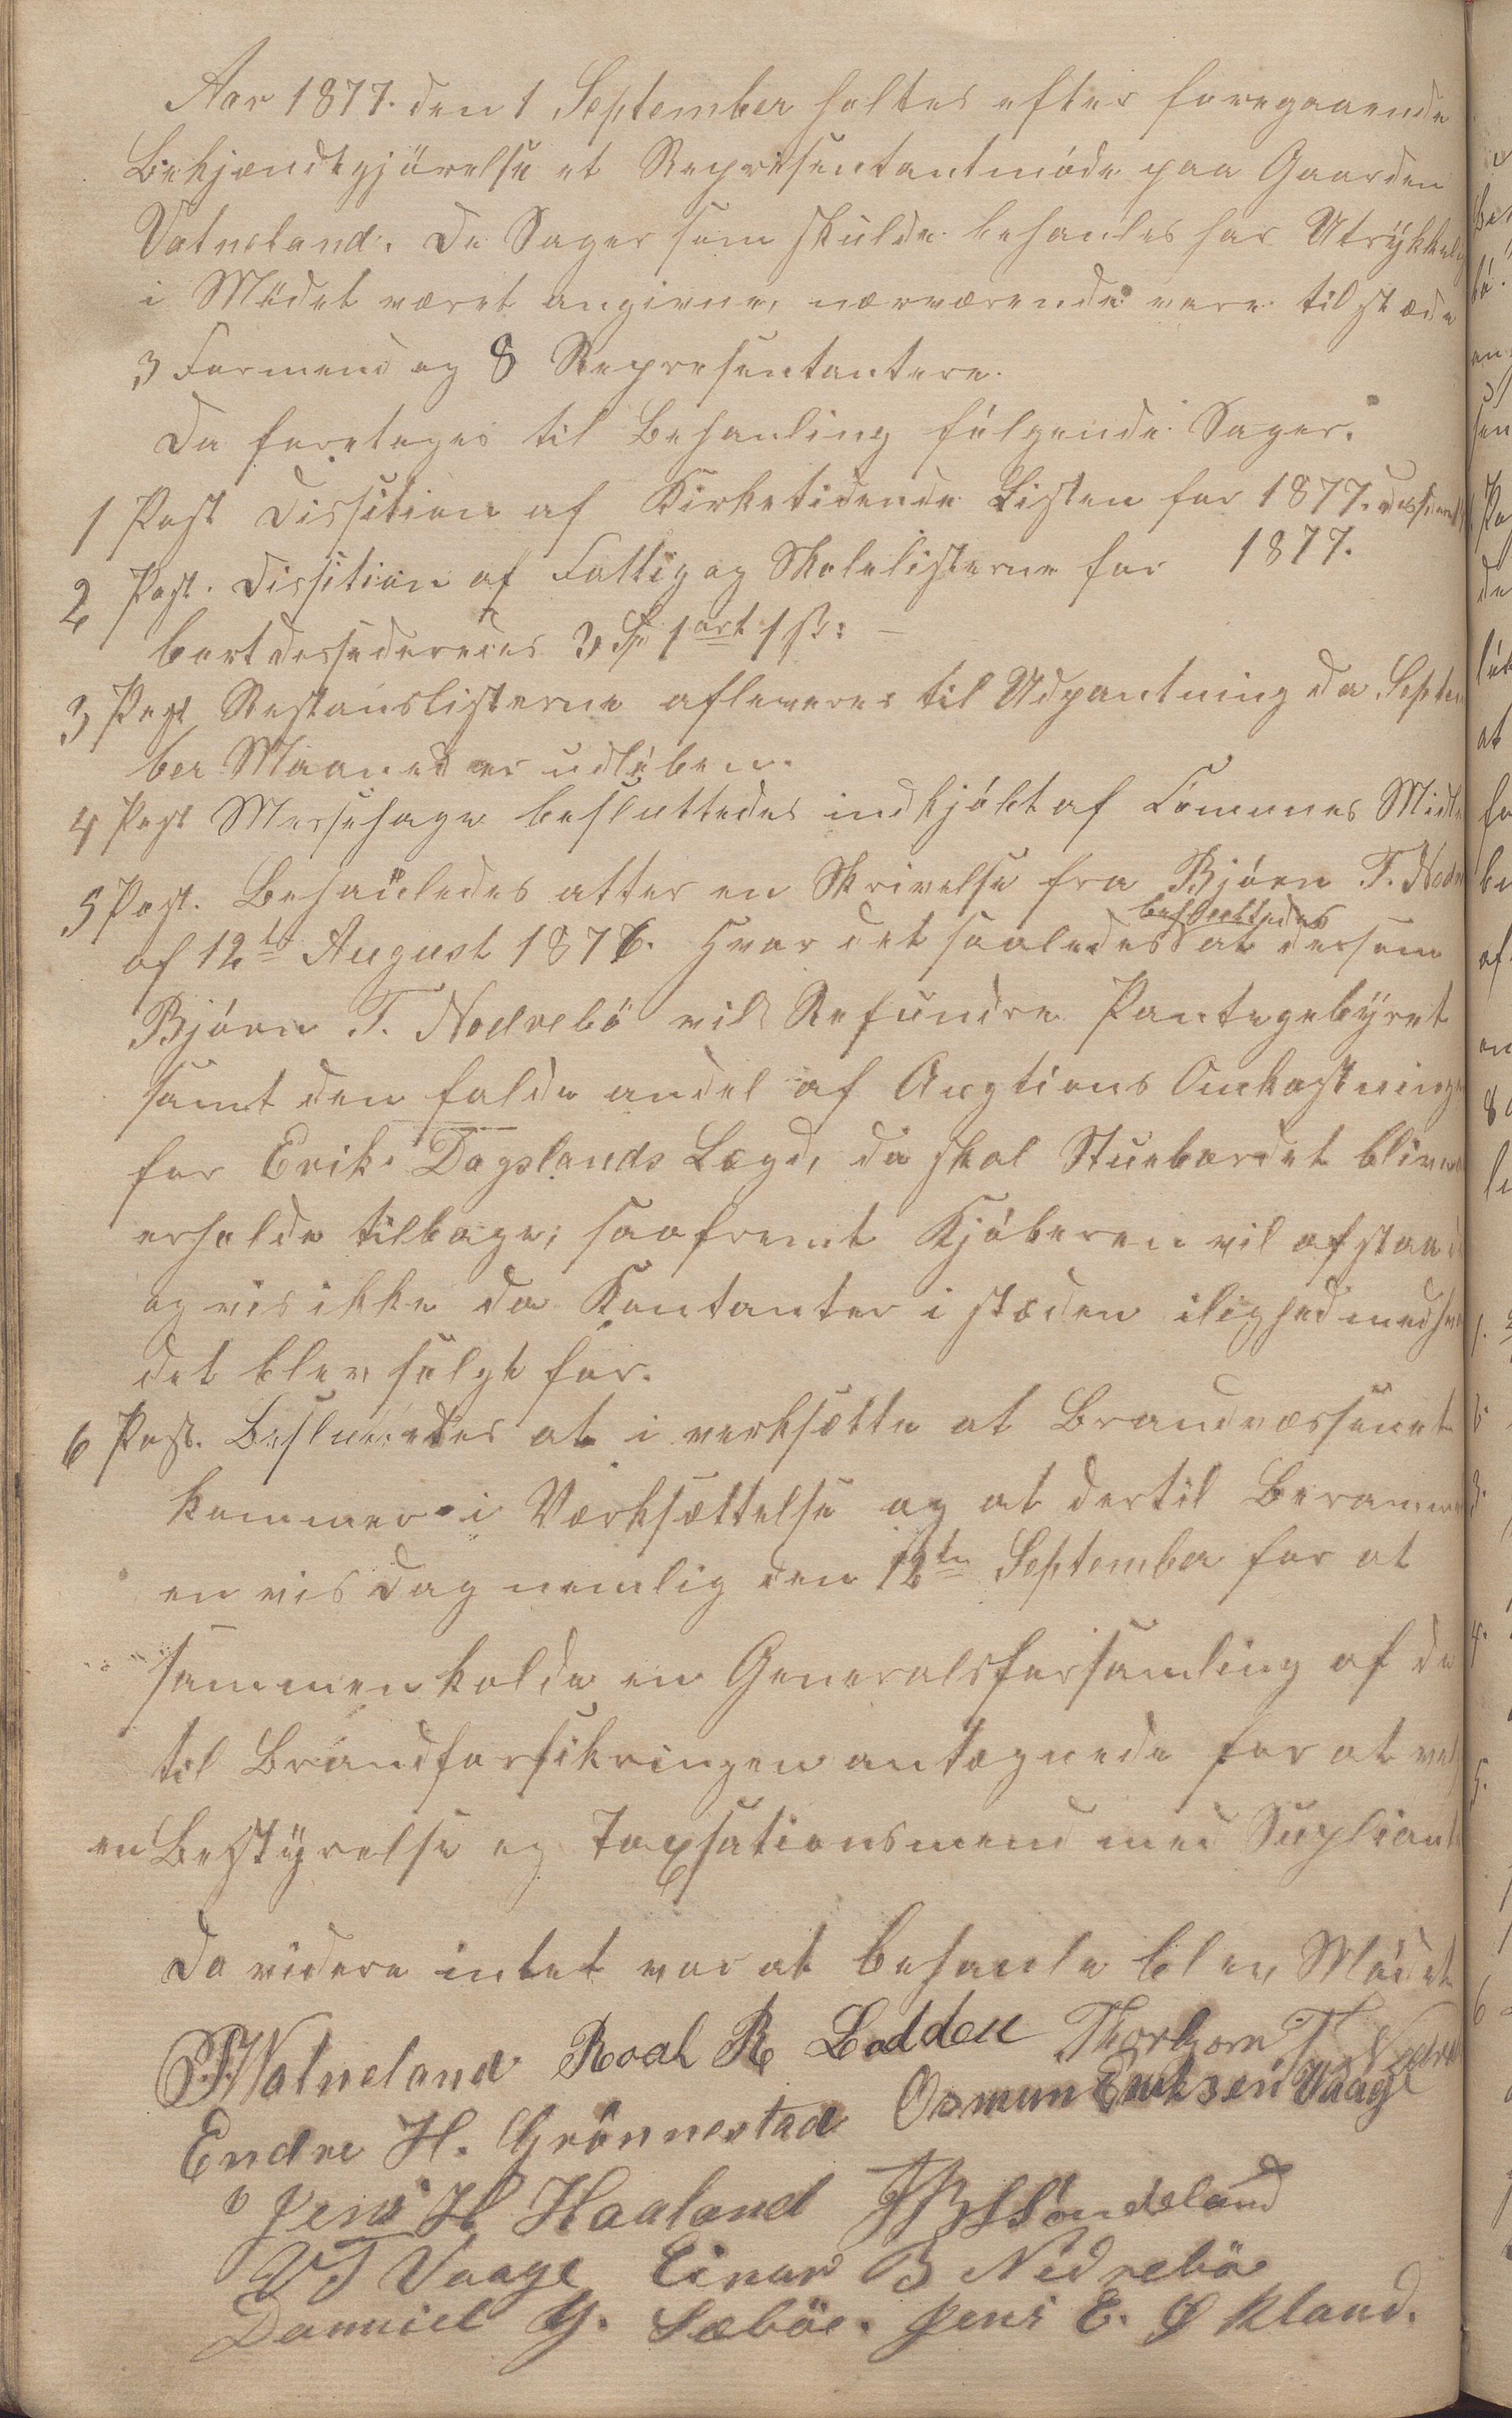 Aar 1877. den 1 September holtes efter foregaaende
Bekjendtgjörelse et Representantmöde paa Gaarden
Vatneland. De Sager som skulde behanles har Utrykkelig
i Mödet været angivne, nærværende vare tilstæde
3 Formend og 8 Representantere.
Da foretoges til Behanling fölgende Sager.
1 Post Dissition af Kirketidende Listen for 1877.
2 Post. Dissition af Fattig og Skolelisterne for 1877.
bort dessideredes 3 Sp 1 ort 1 ß: –
3 Post Restanslisterne afleveres til Udpantning da Septem
ber Maaned er udlöben.
4 Post Messehage besluttedes indkjöbt af Comunes Midler
5 Post. Behanledes atter en Skrivelse fra Björn T. Nedre
af 12te August 1876. Hvor det saaledes besluttedes at dersom
Björn T. Nedrebö vil Refundre Pantegebyret
samt den falde andel af Augtions Omkostninger
for Erik Dagslands Lægd, da skal Stuebordet blive
erholde tilbage; saafremt Kjöberen vil afstaa d
og vis ikke da Kontanter i stæden ilighed med hva
det blev sælgt for.
6 Post. Besluttedes at i verksætte at Brandvæssenet
kommer i Værksættelse og at dertil Beramme
en vis Dag nemlig den 12te September for at
sammenholde en Generalsforsamling af de
til Brandforsikringen antegnede for at vel
en Bestyrelse og Taxsationsmend med Supliant
Da videre intet var at behanle blev Mödet
Vatneland Roal R Lodden Thorbjorn T Nedre
Endre H. Grönnestad Osmun Eriksen Vaage
Jens H Haaland Söndeland
V T Vaage Einar B Nedrebö
Danniel G. Sæböe. Jens E. Økland.